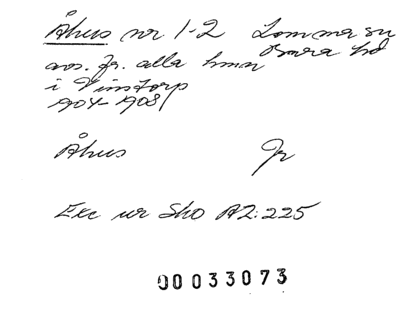 Åhus nr 1-2 Lomma sn
avs. fr. alla hmn Bara hd
i Vinstorp
1904-1908
Åhus Jr
Exc ur Sko A2:225
00033073